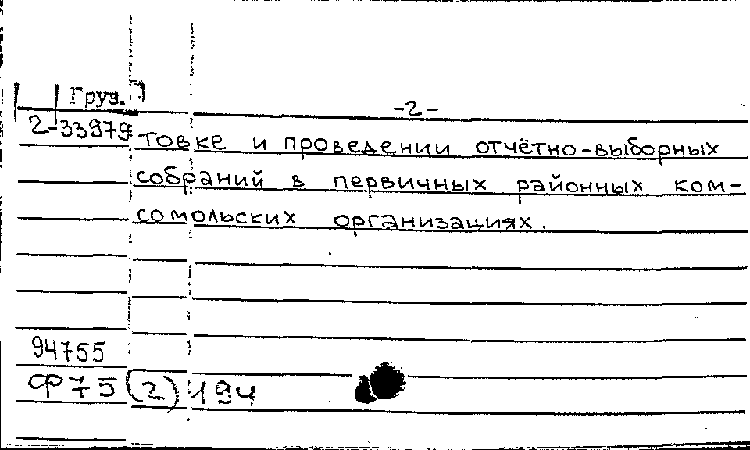 Груз.
-2-
2-33979
товке и проведении отчётно-выборных
собраний в первичных районных ком-
сомольских организациях.
94755
ф75(2)194